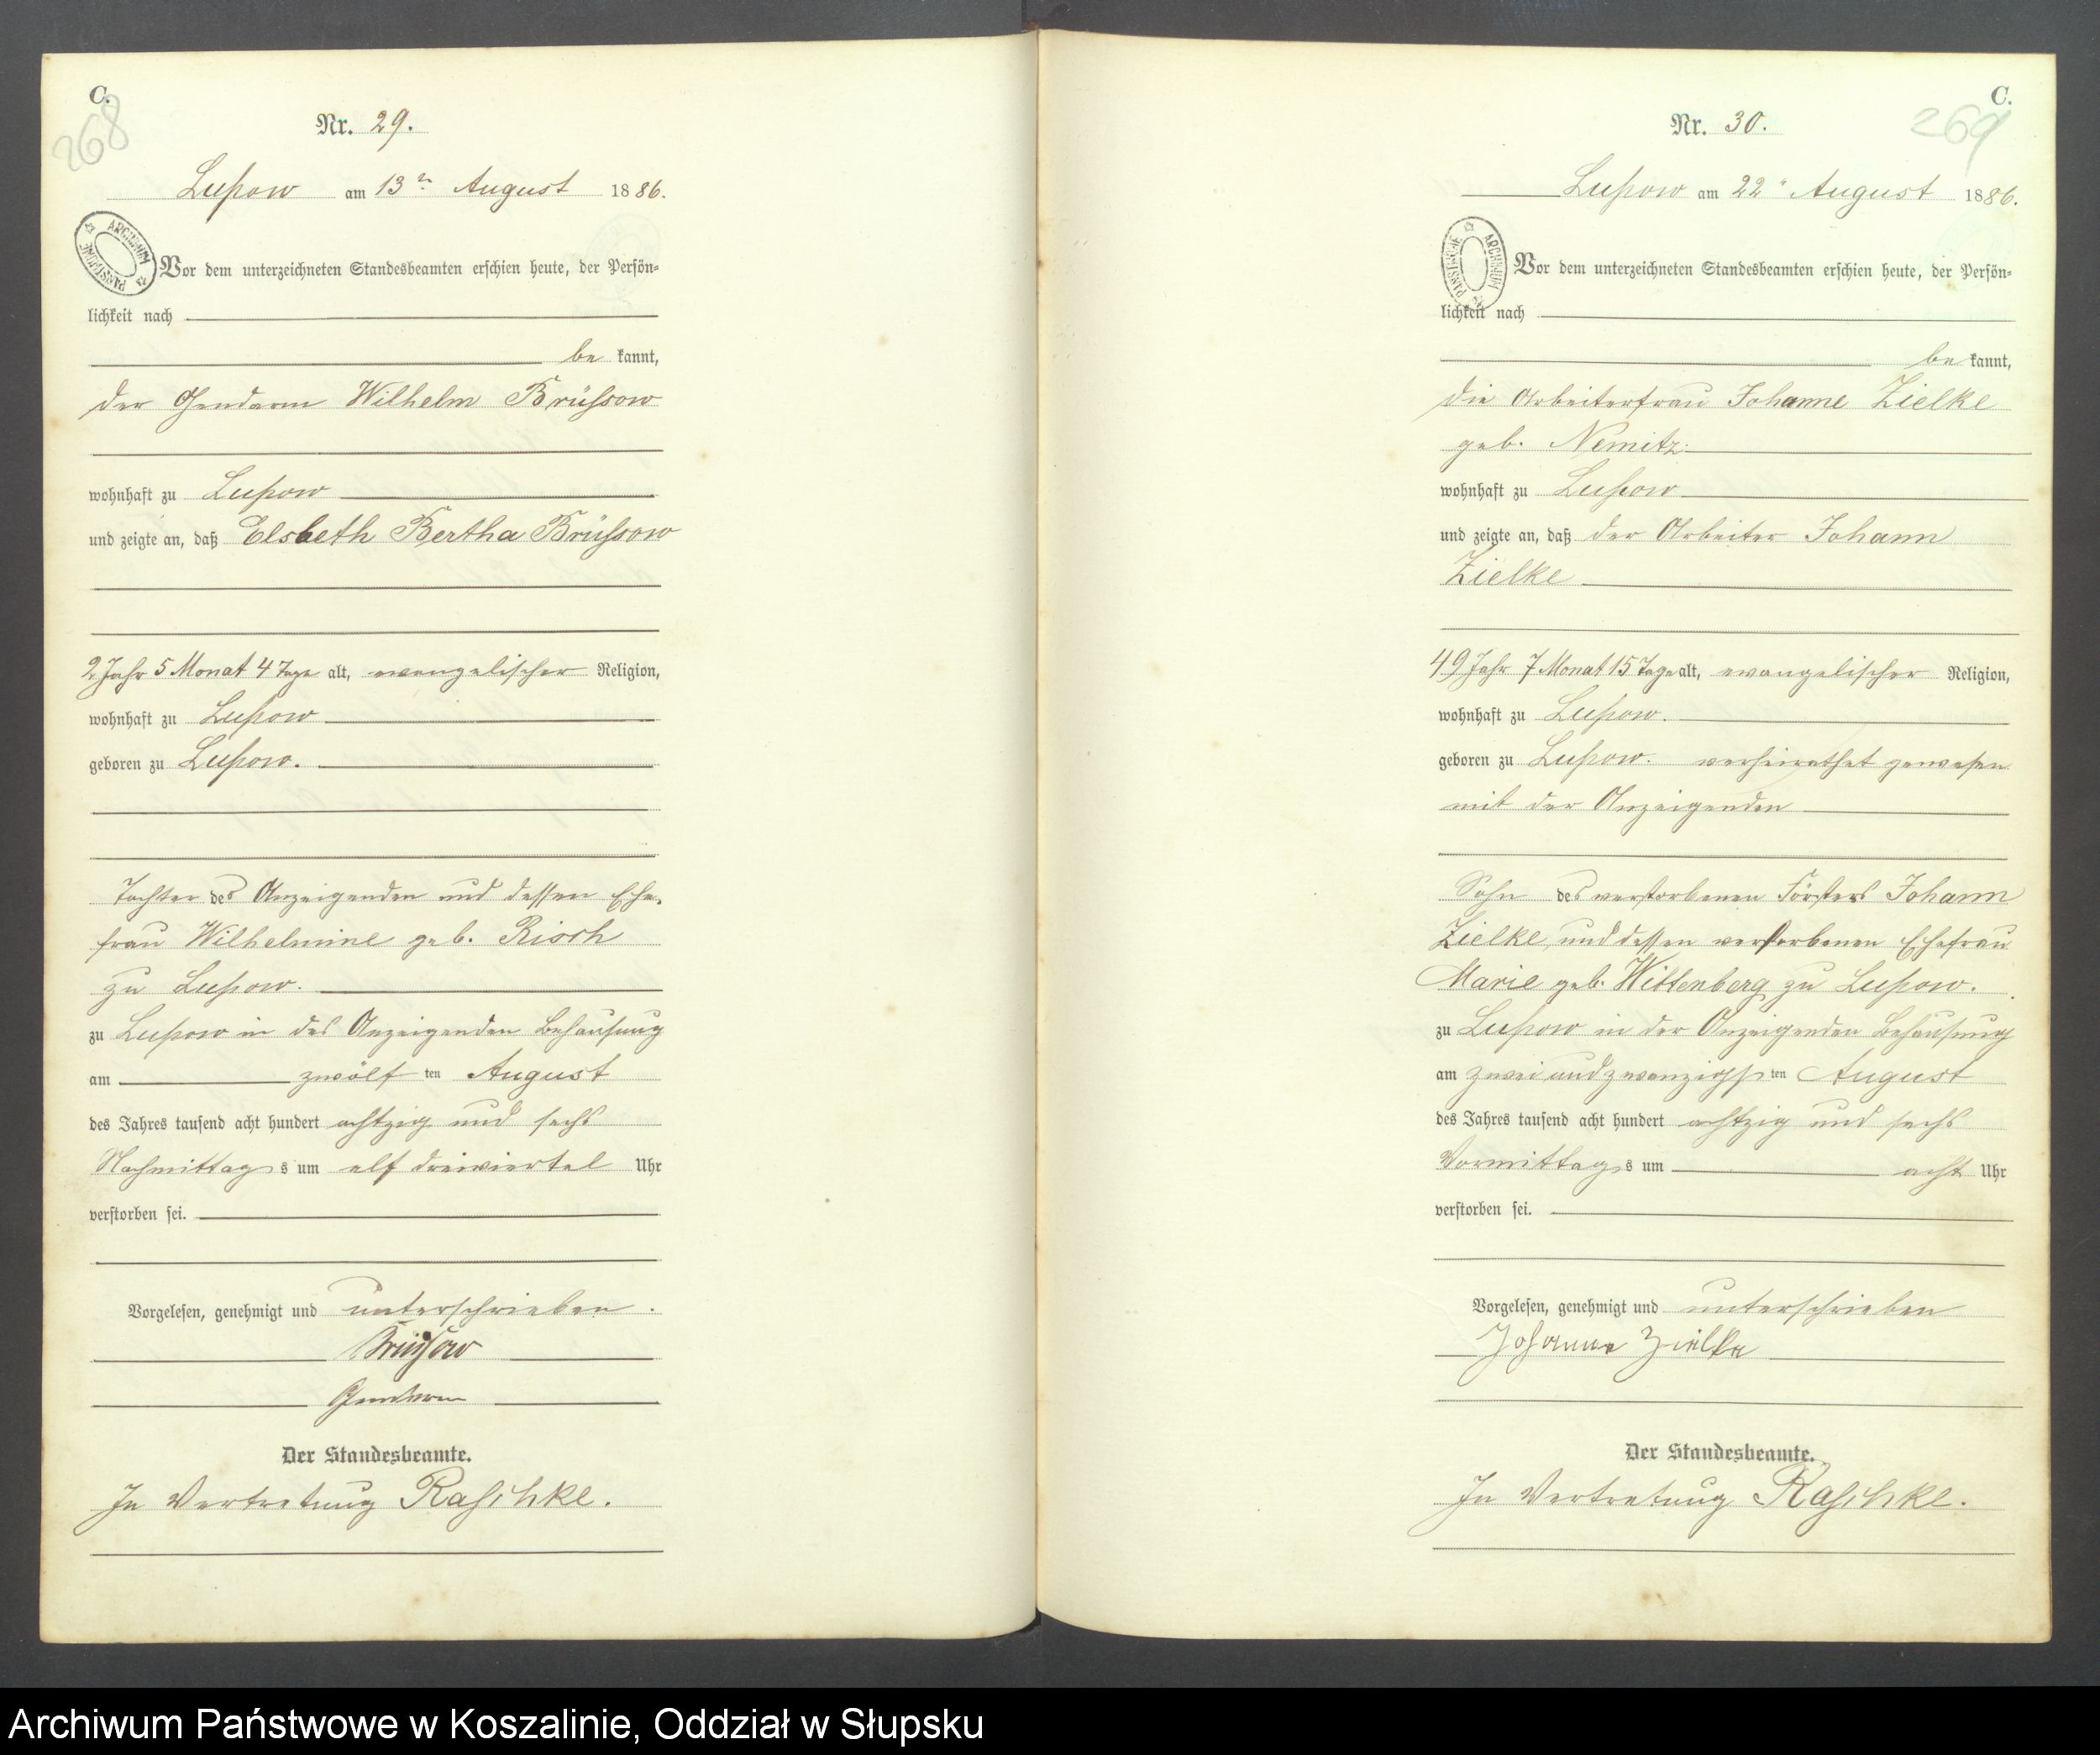 C.
268
Nr. 29.
Lupow am 13ten August 1886.
Vor dem unterzeichneten Standesbeamten erschien heute, der Persön-
lichkeit nach
be kannt,
der Gendarm Wilhelm Brüssow
wohnhaft zu Lupow
und zeigte an, daß Elsbeth Bertha Brüssow
2 Jahr 5 Monat 4 Tage alt, evangelischer Religion,
wohnhaft zu Lupow
geboren zu Lupow.
Tochter des Anzeigenden und dessen Ehe-
frau Wilhelmine geb.
zu Lupow.
zu Lupow in des Anzeigenden Behausung
am zwölf ten August
des Jahres tausend acht hundert achtzig und sechs
Nachmittag s um elf dreiviertel Uhr
verstorben sei.
Vorgelesen, genehmigt und unterschrieben.
Brüssow
Gendarm
Der Standesbeamte.
In Vertretung Raschke.
C.
269
Nr. 30.
Lupow am 22ten August 1886.
ARCHIWUM PAŃSTWOWE
Vor dem unterzeichneten Standesbeamten erschien heute, der Persön-
lichkeit nach
be kannt,
die Arbeiterfrau Johanne Zielke
geb. Nemitz
wohnhaft zu Lupow
und zeigte an, daß der Arbeiter Johann
Zielke
49 Jahr 7 Monat 15 Tage alt, evangelischer Religion,
wohnhaft zu Lupow.
geboren zu Lupow. verheirathet gewesen
mit der Anzeigenden
Sohn des verstorbenen Försters Johann
Zielke und dessen verstorbenen Ehefrau
Marie geb. Wittenberg zu Lupow.
zu Lupow in der Anzeigenden Behausung
am zwei und zwanzigs ten August
des Jahres tausend acht hundert achtzig und sechs
Vormittag s um acht Uhr
verstorben sei.
Vorgelesen, genehmigt und unterschrieben
Johanne Zielke
Der Standesbeamte.
In Vertretung Raschke.
Archiwum Państwowe w Koszalinie, Oddział w Słupsku